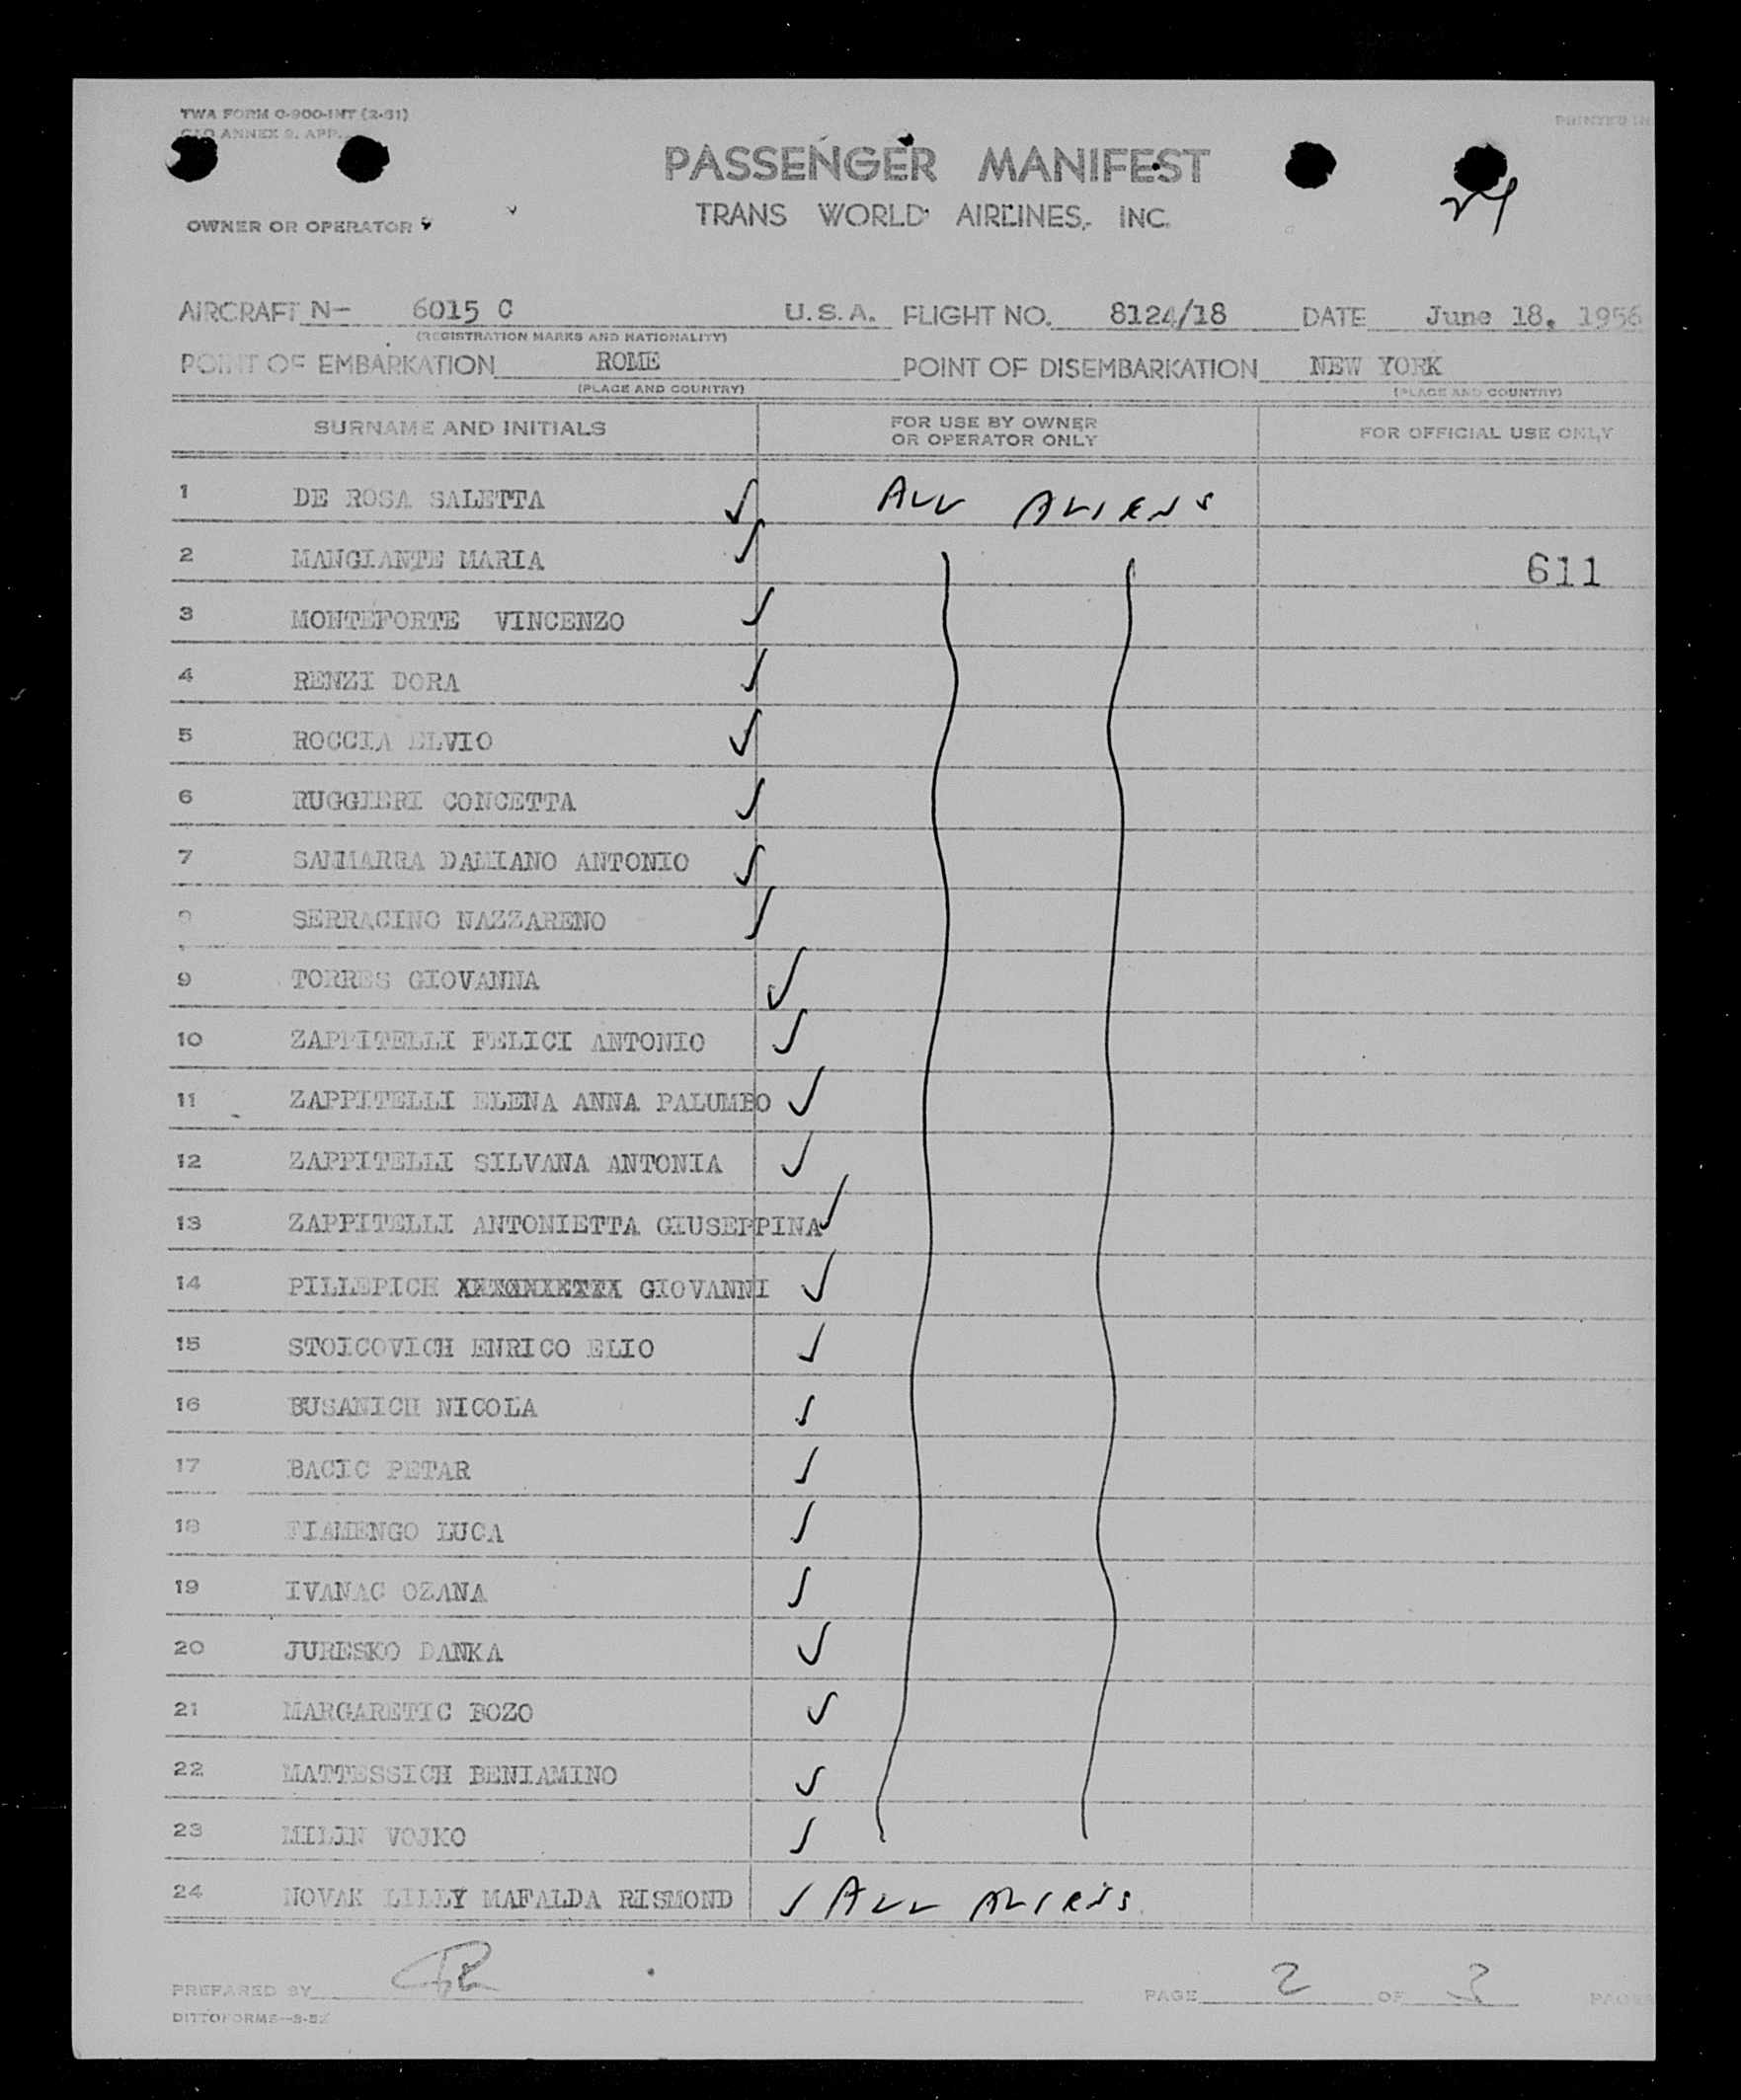 TWA FORM O-900-INT (2-51)
ANNEX 9. APP.
PRINTED IN
PASSENGER MANIFEST
24
TRANS WORLD AIRLINES, INC.
OWNER OR OPERATOR
AIRCRAFT N- 6015 C U.S.A. FLIGHT NO. 8124/18 DATE June 18, 1956
(REGISTRATION MARKS AND NATIONALITY)
POINT OF EMBARKATION ROME POINT OF DISEMBARKATION NEW YORK
(PLACE AND COUNTRY) (PLACE AND COUNTRY)
SURNAME AND INITIALS FOR USE BY OWNER OR OPERATOR ONLY FOR OFFICIAL USE ONLY
1 DE ROSA SALETTA ✓ ALL ALIENS
2 MANGIANTE MARIA ✓ 611
3 MONTEFORTE VINCENZO ✓
4 RENZI DORA ✓
5 ROCCIA ELVIO ✓
6 RUGGIERI CONCETTA ✓
7 SAMMARRA DAMIANO ANTONIO ✓
8 SERRACINO NAZZARENO ✓
9 TORRES GIOVANNA ✓
10 ZAPPITELLI FELICI ANTONIO ✓
11 ZAPPITELLI ELENA ANNA PALUMBO ✓
12 ZAPPITELLI SILVANA ANTONIA ✓
13 ZAPPITELLI ANTONIETTA GIUSEPPINA ✓
14 PILLEPICH GIOVANNI ✓
15 STOICOVICH ENRICO ELIO ✓
16 BUSANICH NICOLA ✓
17 BACIC PETAR ✓
18 FIAMENGO LUCA ✓
19 IVANAC OZANA ✓
20 JURESKO DANKA ✓
21 MARGARETIC BOZO ✓
22 MATTESSICH BENIAMINO ✓
23 MILIN VOJKO ✓
24 NOVAK LILLY MAFALDA RISMOND ✓ ALL ALIENS
PREPARED BY PAGE 2 OF 3 PAGES
DITTOFORMS-3-52